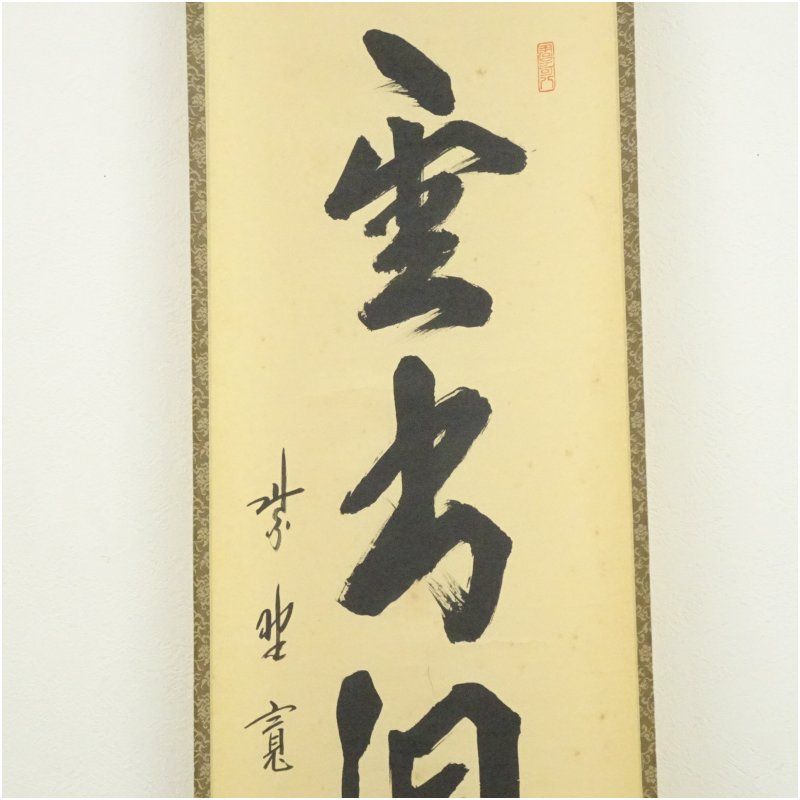 雲出洞
紫野寛